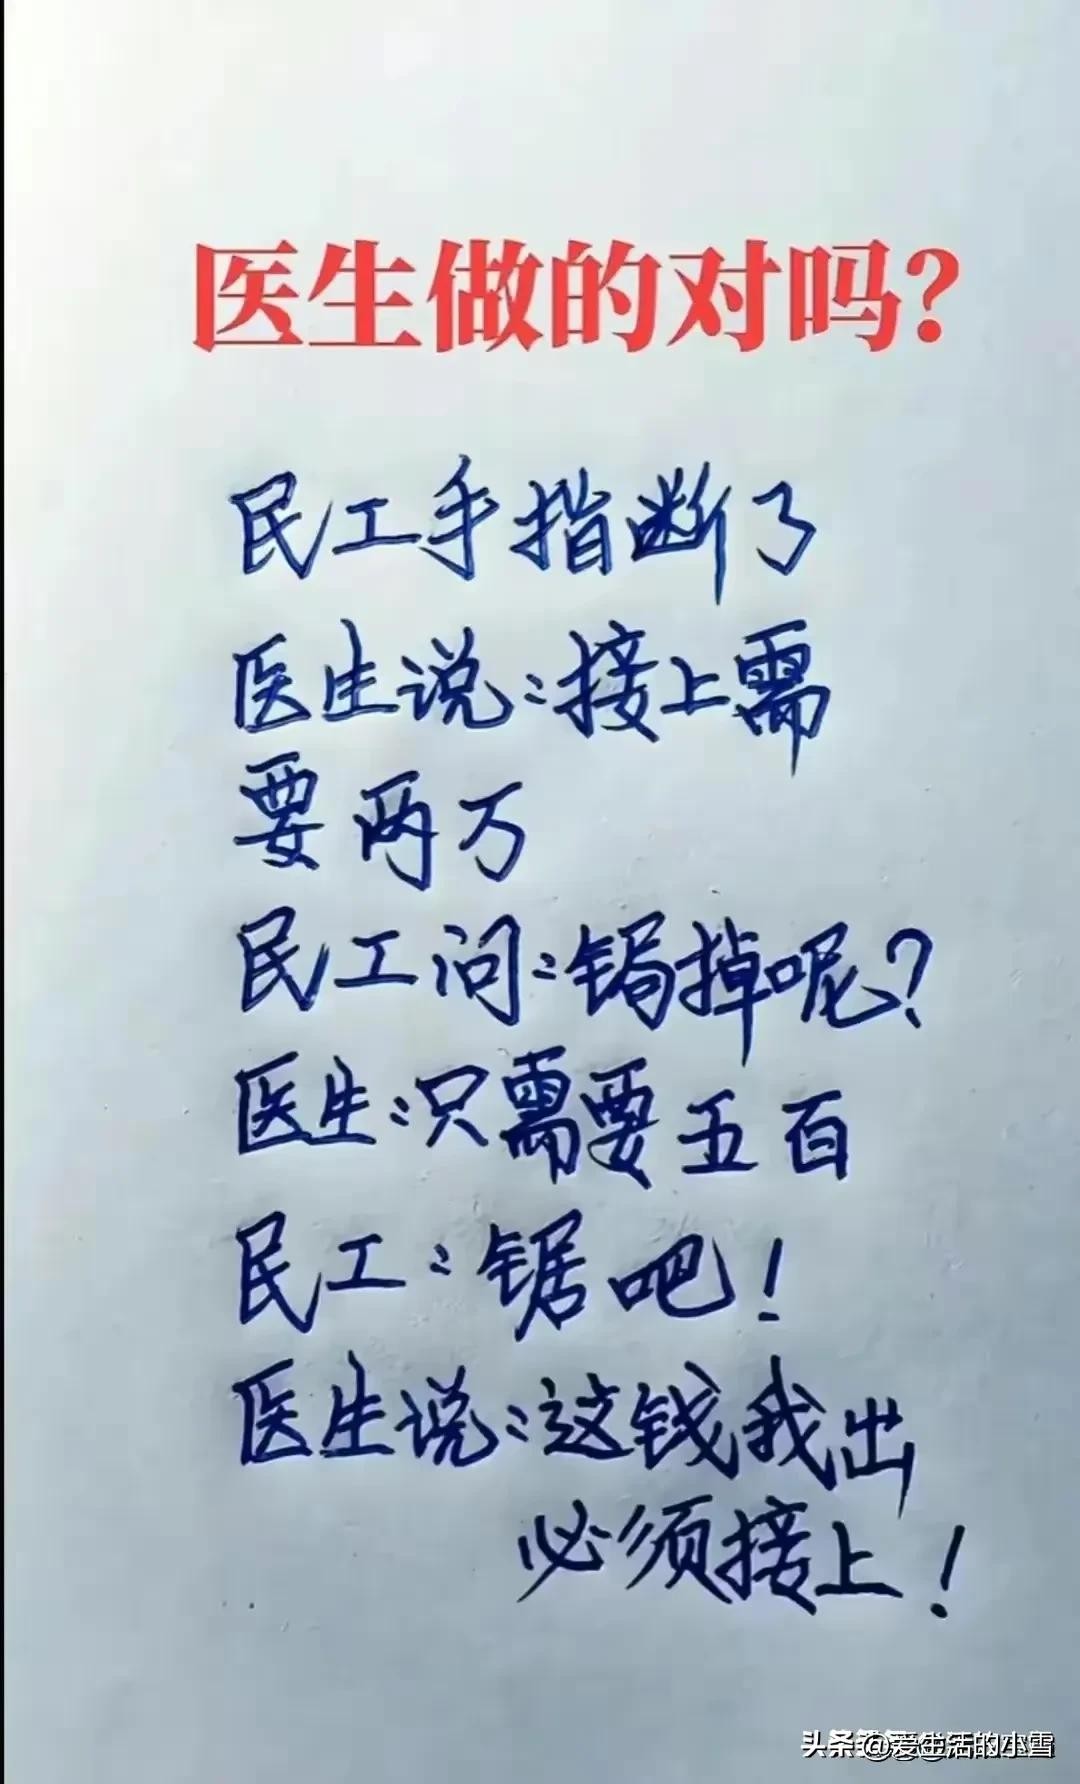 医生做的对吗?
民工手指断了
医生说:接上需
要两万
民工问:锯掉呢?
医生:只需要五百
民工:锯吧!
医生说:这钱我出
必须接上!
头条 @爱生活的小雪